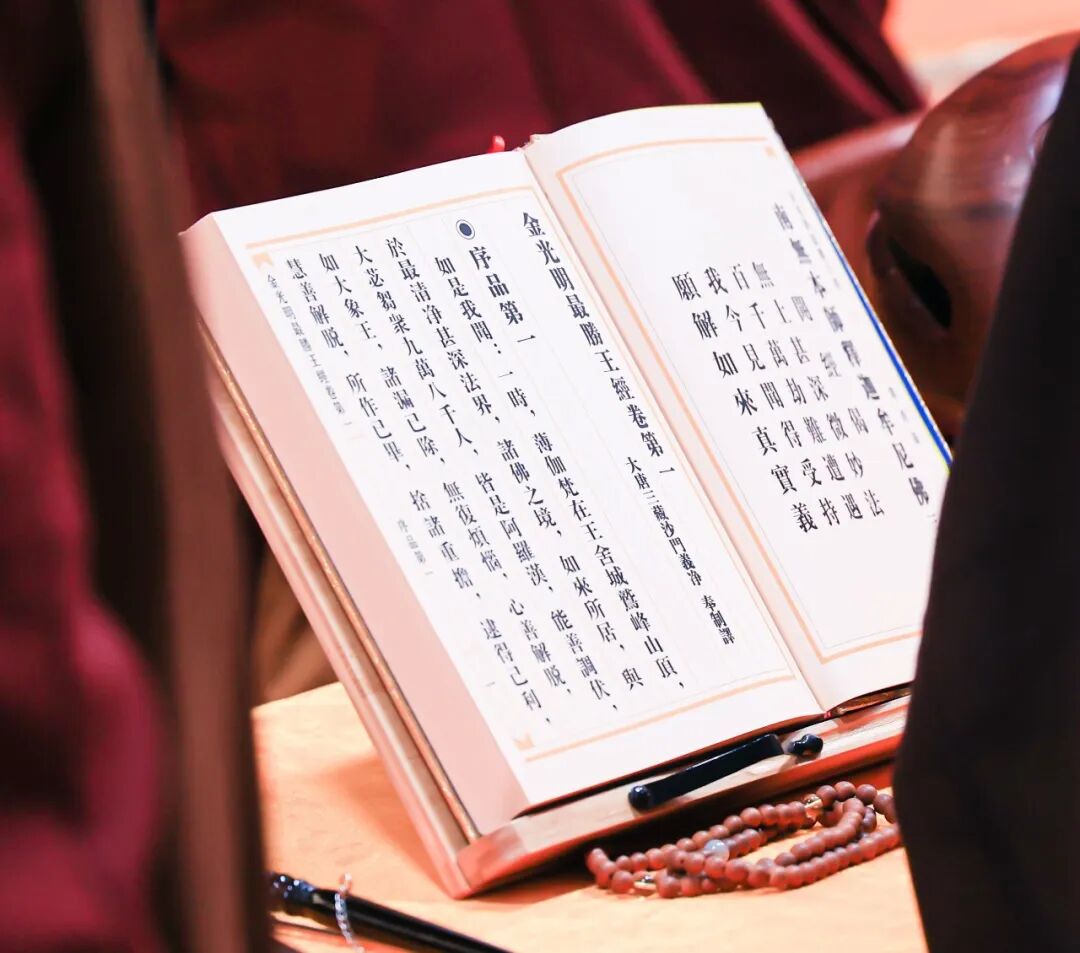 南無本師釋迦牟尼佛
開經偈
無上甚深微妙法
百千萬劫難遭遇
我今見聞得受持
願解如來真實義
金光明最勝王經卷第一
大唐三藏沙門義净 奉制譯
序品第一
如是我聞：一時，薄伽梵在王舍城鷲峰山頂，
於最清净甚深法界，諸佛之境，如來所居，與
大苾芻衆九萬八千人，皆是阿羅漢，能善調伏，
如大象王，諸漏已除，無復煩惱，心善解脱，
慧善解脱，所作已畢，捨諸重擔，逮得己利，
金光明最勝王經卷第一 序品第一 一